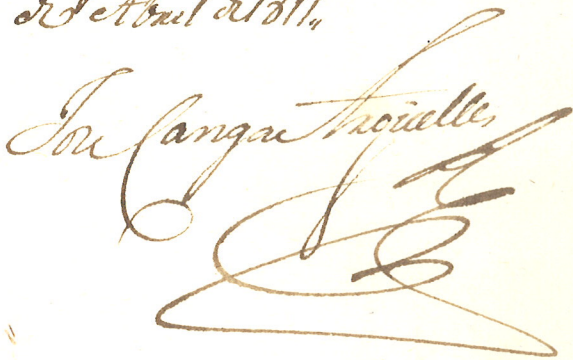 de Abril de 1811,,
Jose Canga Argüelles